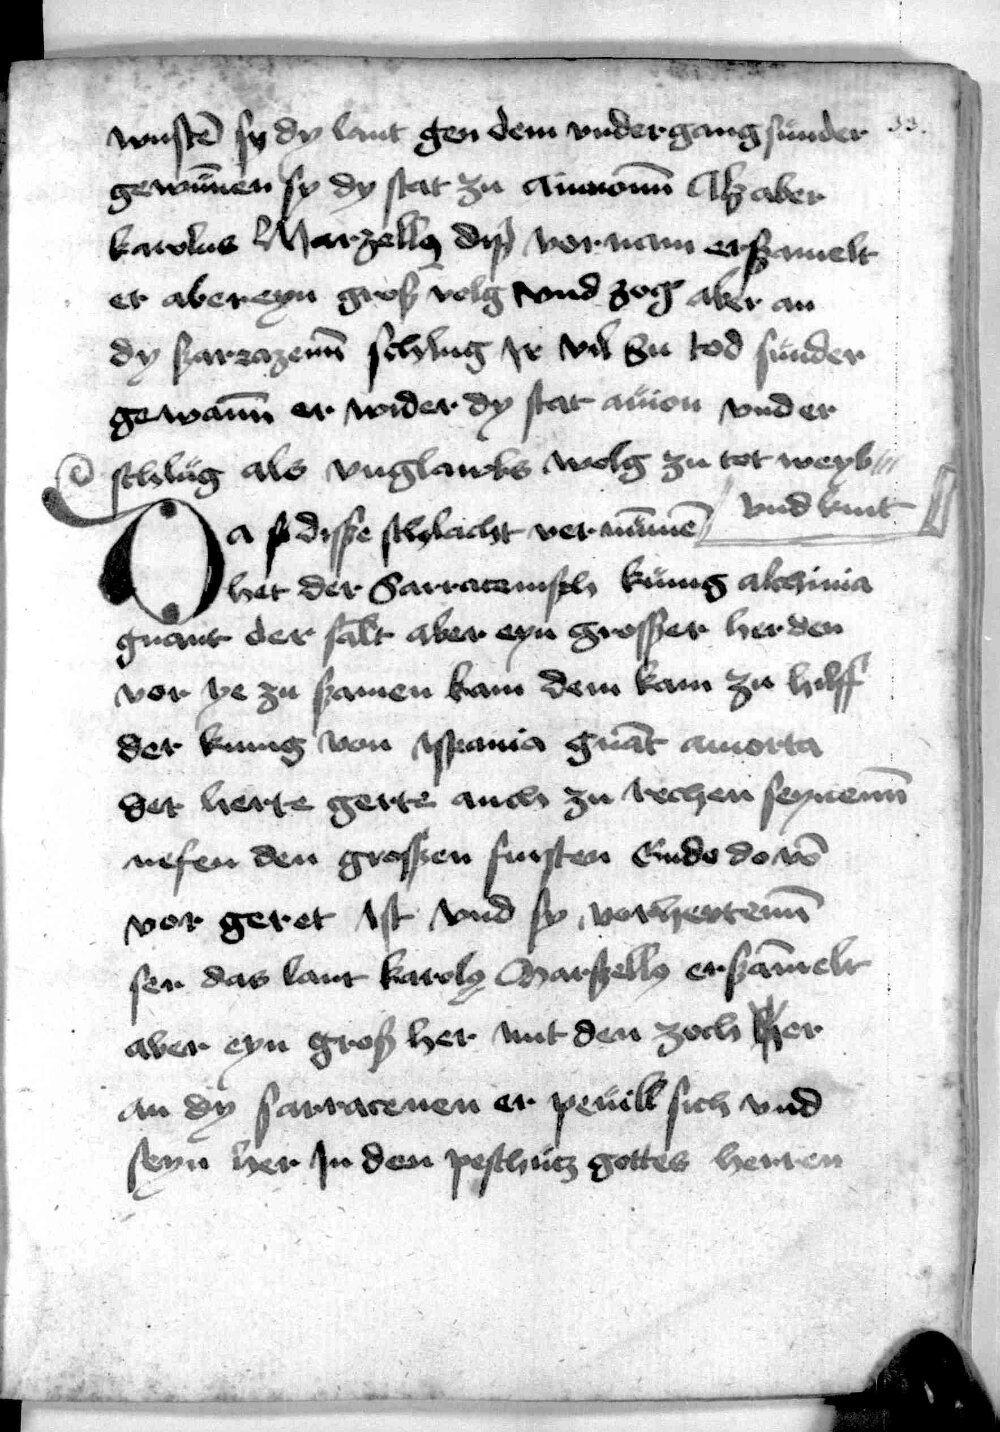 wustē sy dy lant gen dem vndergang sunder 33.
gewūnen sy dy stat zu Auinonn Alz aber
karolus Marzellꝰ diß vornam erßamelt
er aber eyn groß volg vnd zog aber an
dy ßarrazenn̄ schlug Ir vil zu tod sunder
gewann̄ er wider dy stat auion vnd er
schlüg als vnglawbs wolg zu tot weyb
vnd kint
Da disße schlacht vernūmē
het der Sarracenisch künig alchima
gnant der salt aber eyn grosßer her den
vor ye zu ßamen kam dem kam zu hilff
der kunig von Ispania gnāt amorra
der herte gerte auch zu rechen seynenn̄
nefen den grosßen fursten Eudo do vō
vor geret Ist vnd sy vorhertenn̄
ser das lant karolꝰ Marßellꝰ erßāmelt
aber eyn groß her mit den zoch er
an dy sarracenen er peuilk sich vnd
seyn her In den peschücz gottes herren